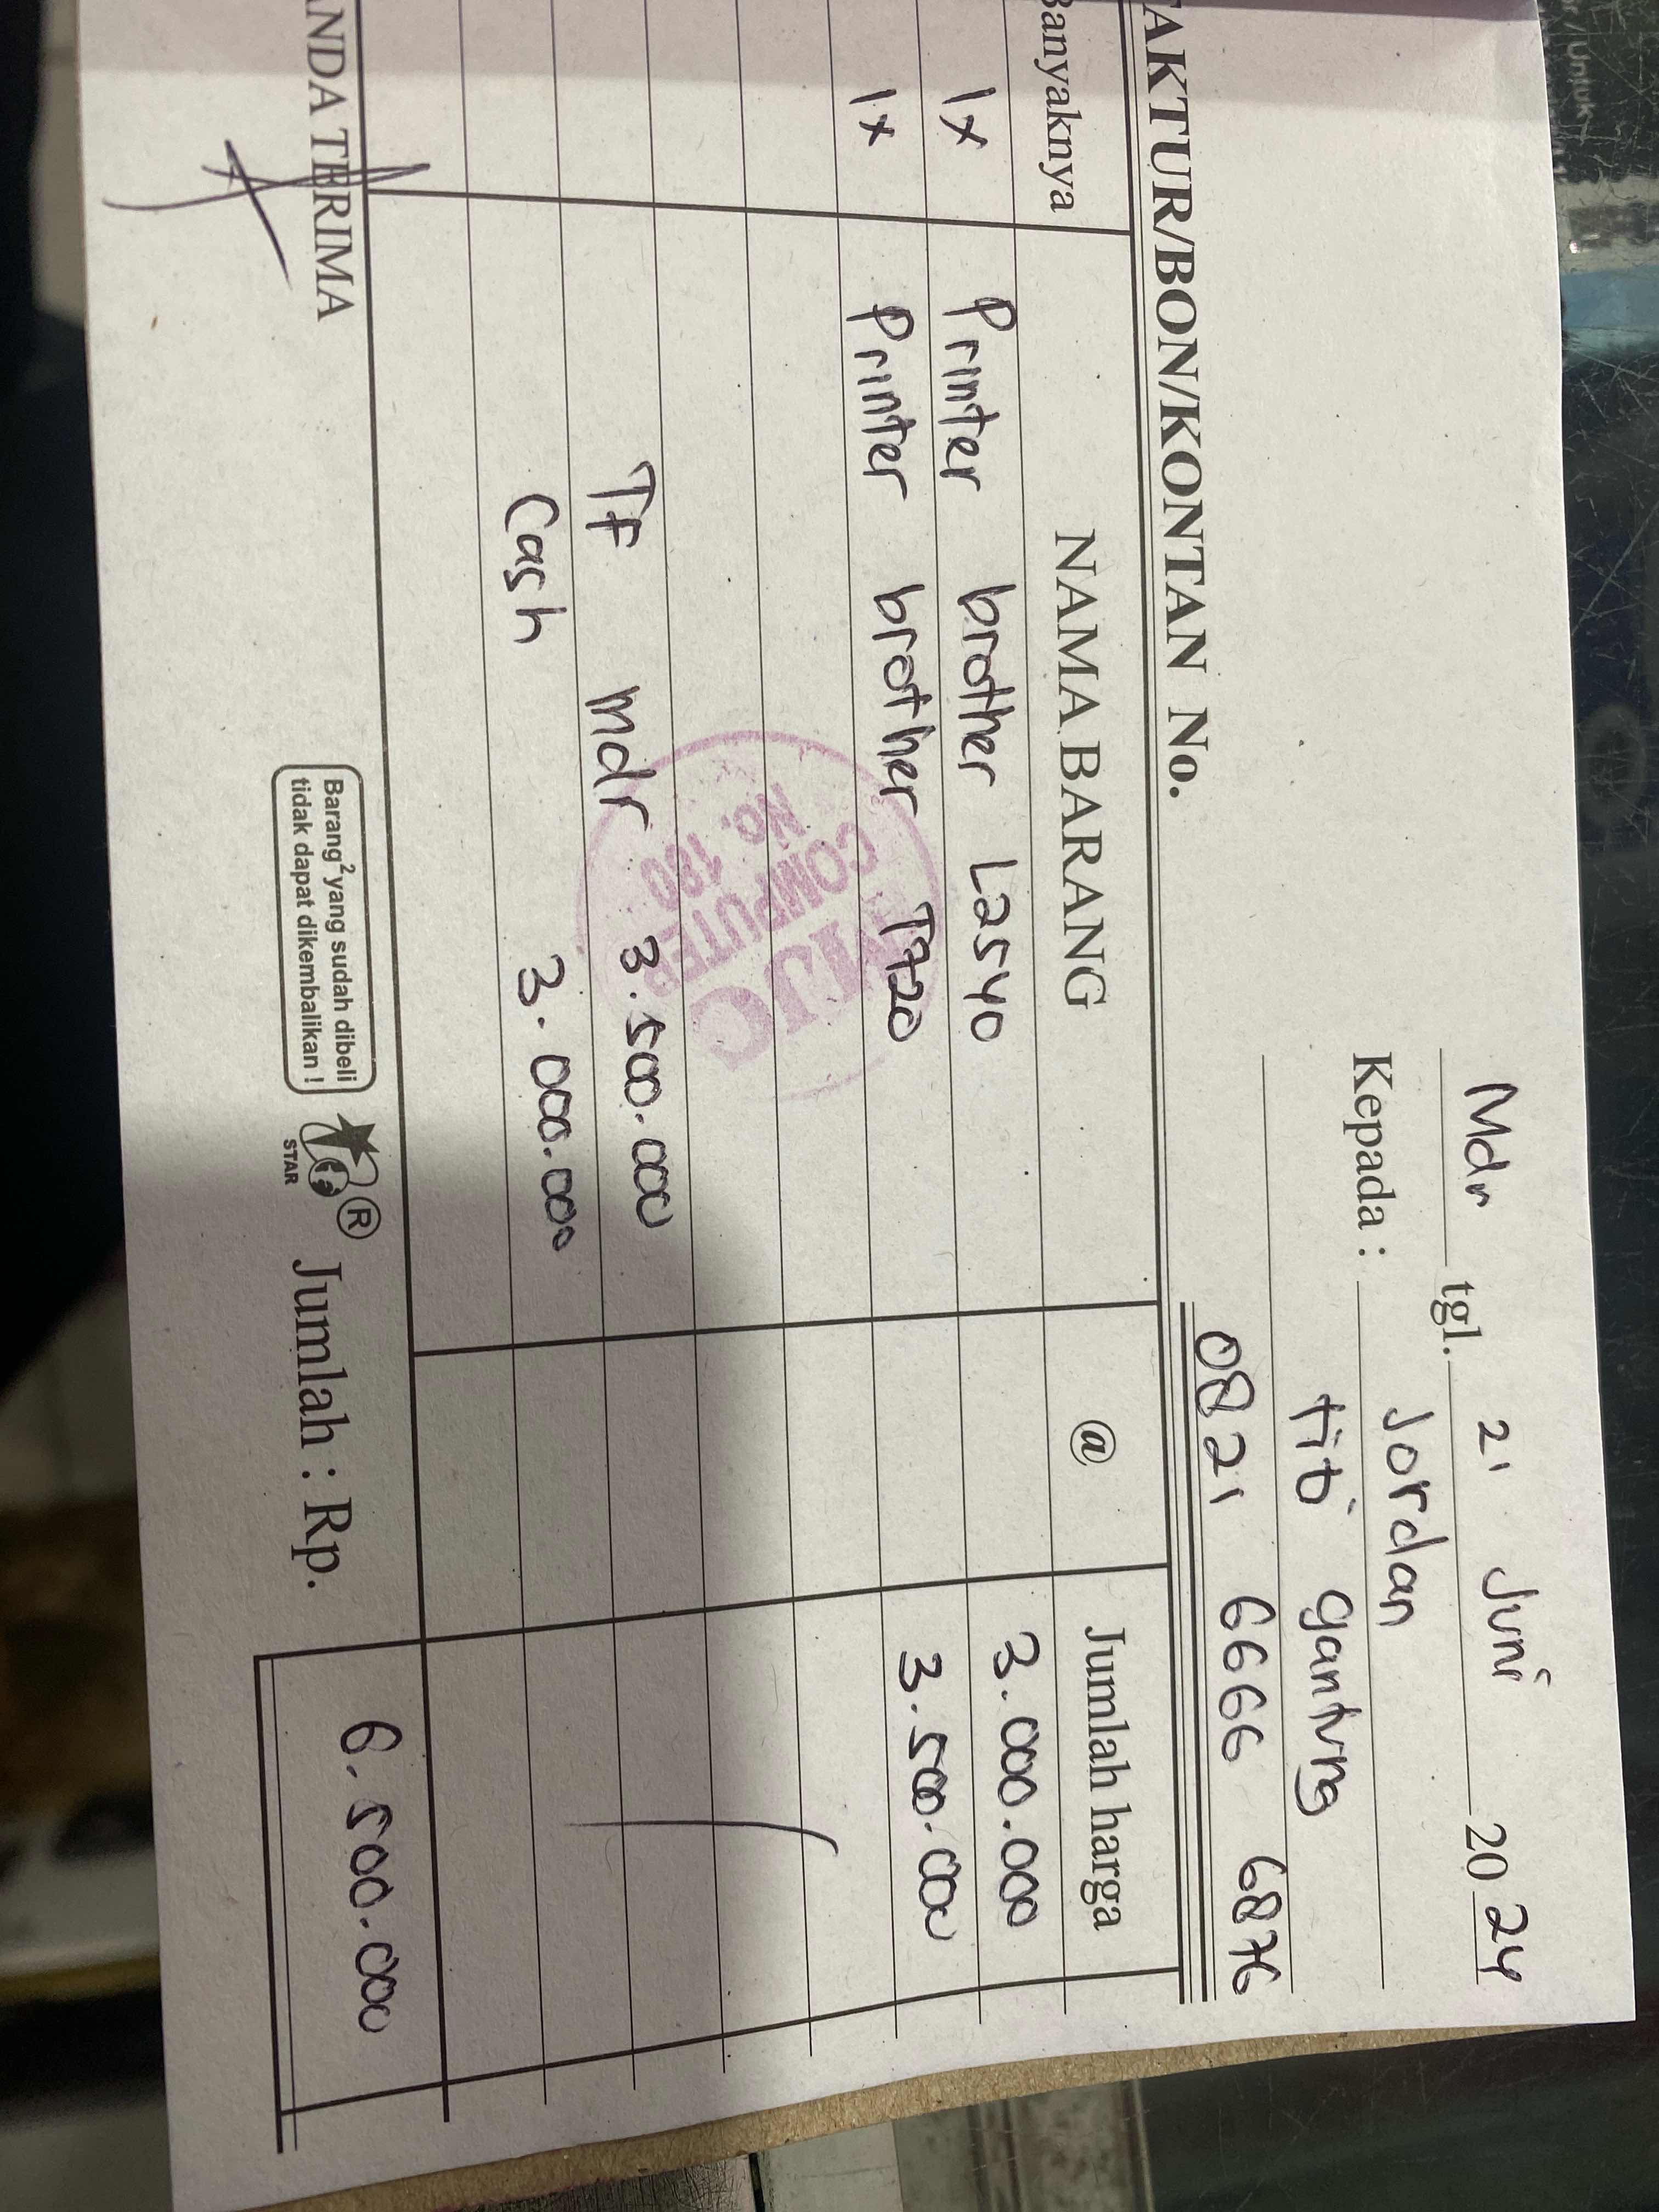 Mdr tgl. 21 Juni 2024
Kepada : Jordan
titi gantung
0821 6666 6876
AKTUR/BON/KONTAN No.
Banyaknya NAMA BARANG @ Jumlah harga
1x Printer brother L2540 3.000.000
1x Printer brother T920 3.500.000
MJC
COMPUTER
No. 180
TF mdr 3.500.000
Cash 3.000.000
ANDA TERIMA
Barang2 yang sudah dibeli
tidak dapat dikembalikan !
STAR
®
Jumlah : Rp. 6.500.000
/Untuk